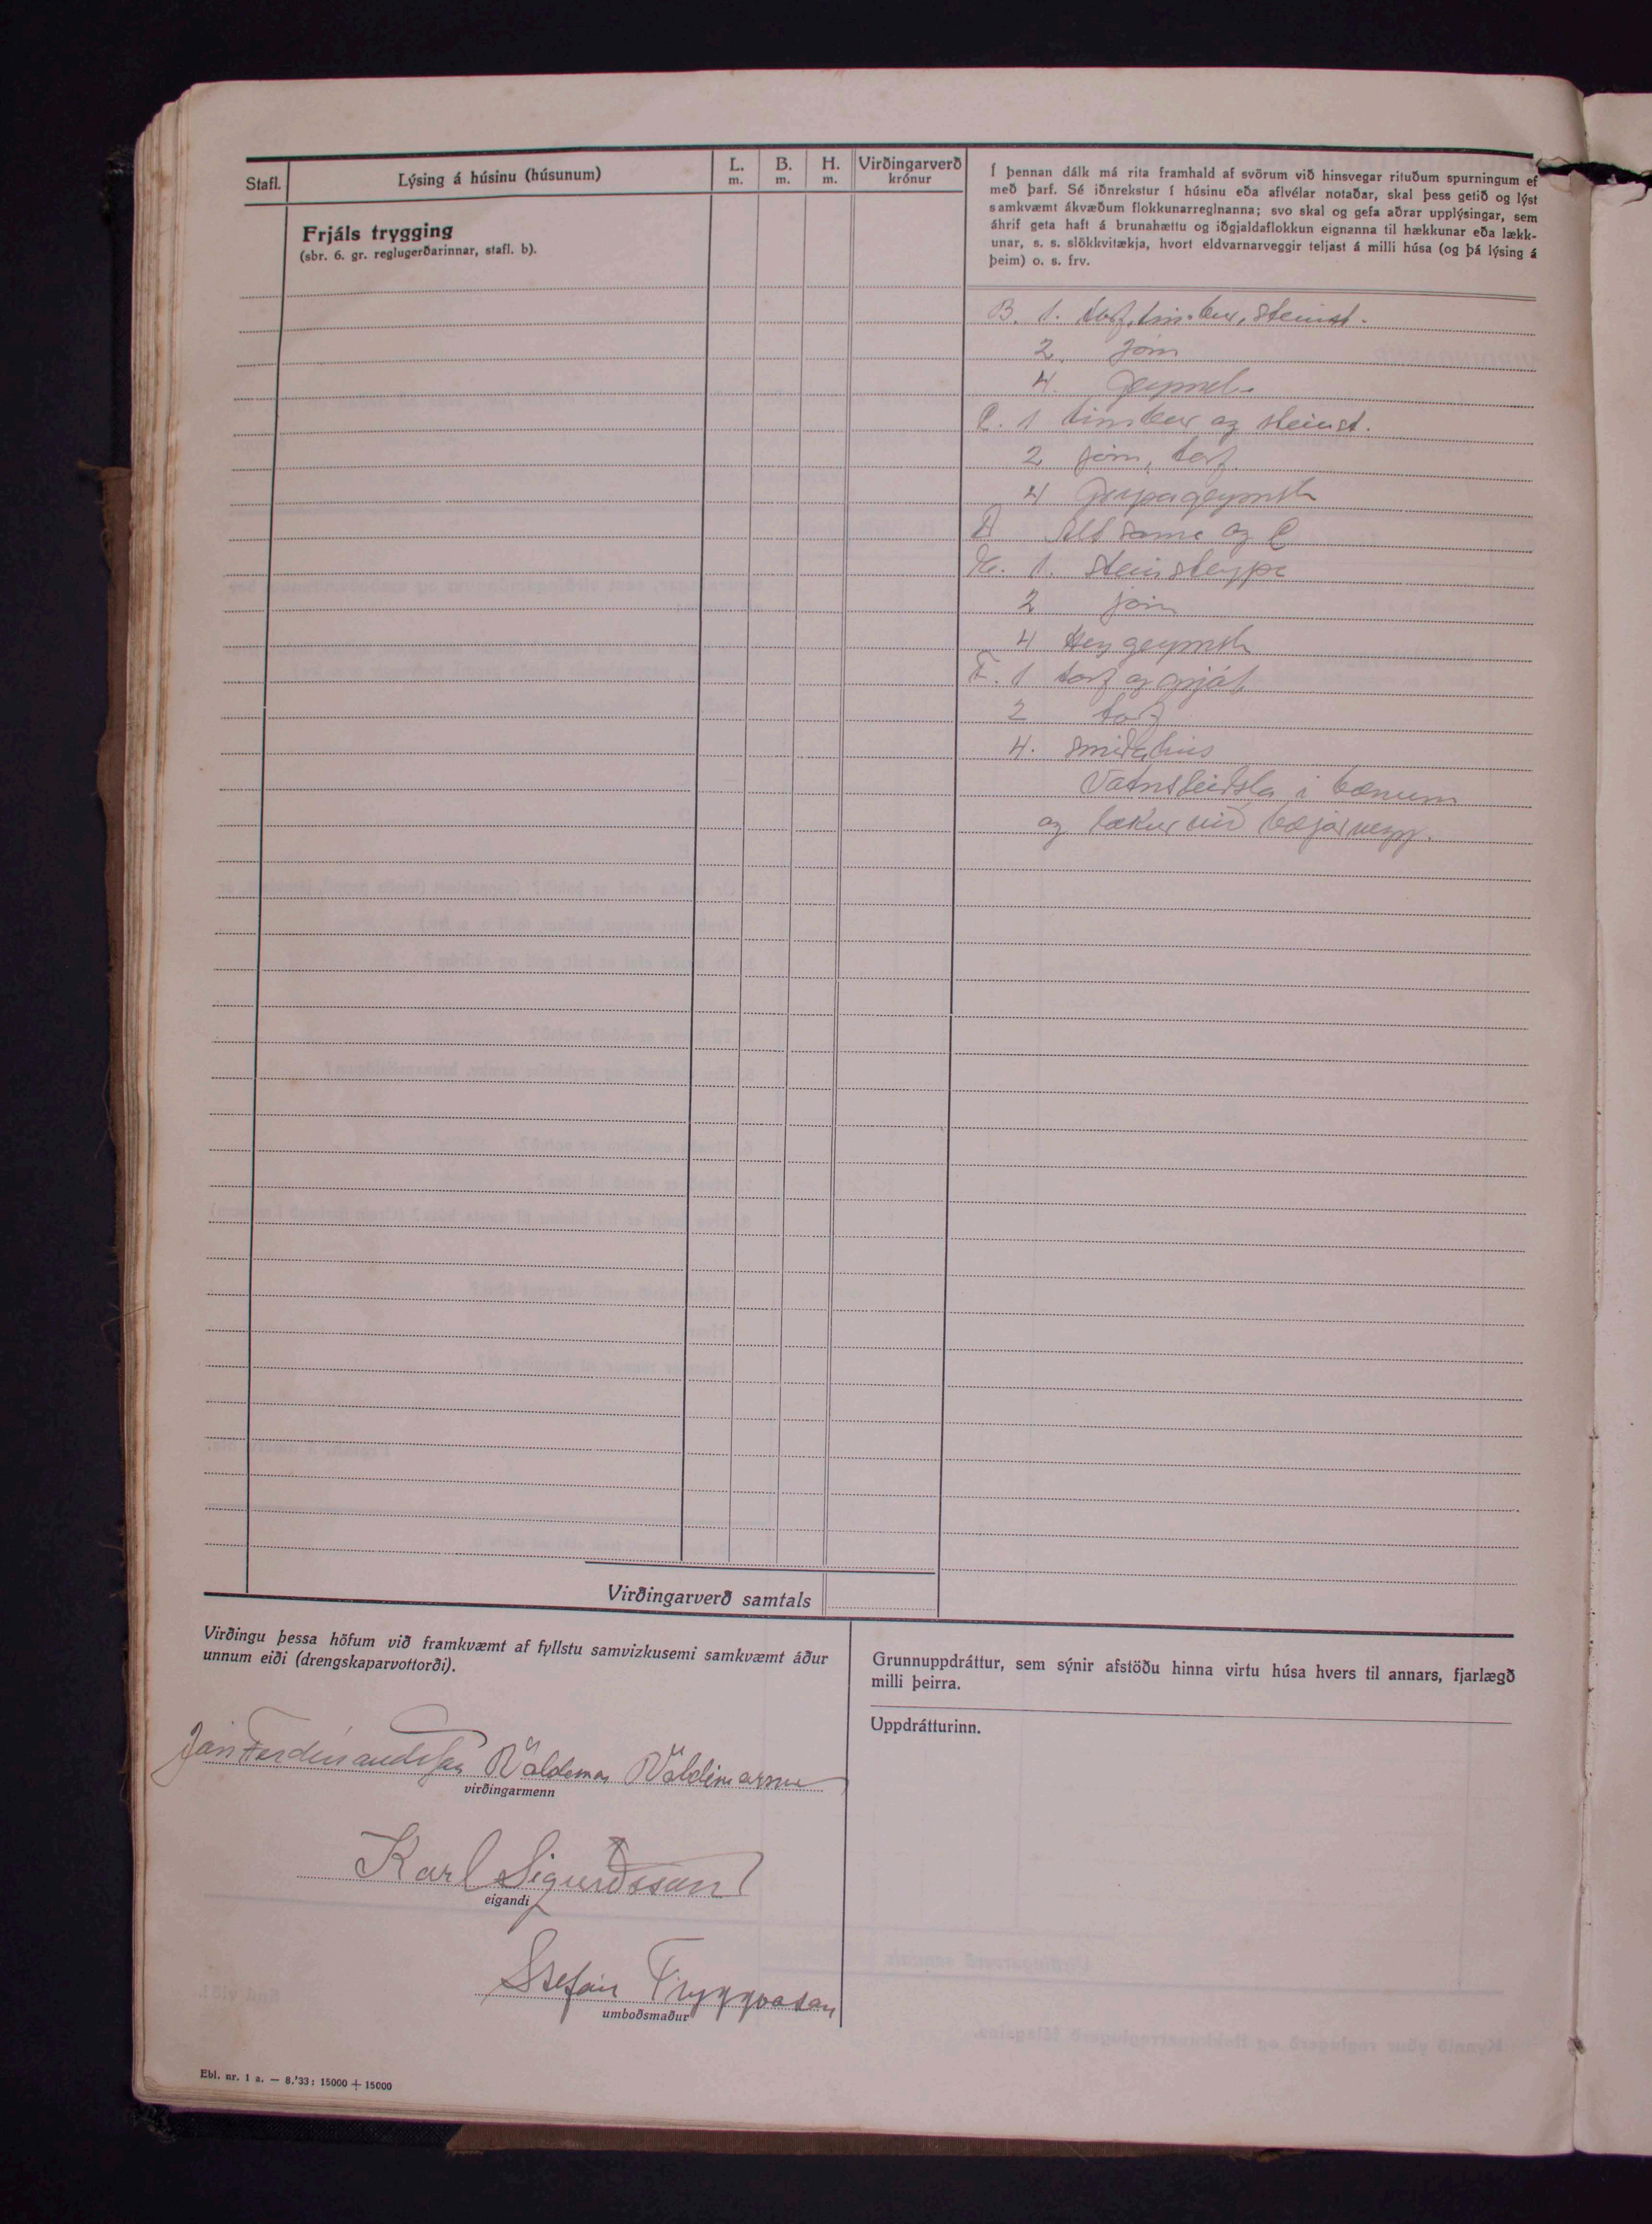 Stafl.
Lýsing á húsinu (húsunum)
L.
m.
B.
m.
H.
m.
Virðingarverð
krónur
Frjáls trygging
(sbr. 6. gr. reglugerðarinnar, stafl. b).
Í þennan dálk má rita framhald af svörum við hinsvegar rituðum spurningum ef
með þarf. Sé iðnrekstur í húsinu eða aflvélar notaðar, skal þess getið og lýst
samkvæmt ákvæðum flokkunarreglnanna; svo skal og gefa aðrar upplýsingar, sem
áhrif geta haft á brunahættu og iðgjaldaflokkun eignanna til hækkunar eða lækk-
unar, s. s. slökkvitækja, hvort eldvarnarveggir teljast á milli húsa (og þá lýsing á
þeim) o. s. frv.
B. 1. torf, timbur, steinst.
2. Járn
4. geymsla
C. 1 timbur og steinst.
2 járn, torf
4 geymsla
D Alt sama og C
E. 1. steinsteypa
2 járn
4 Heygeymsla
F. 1 torf og grjót
2 torf
4. smiðahús
Vatnsleiðsla í bænum
og lækur við bæjarvegg.
Virðingarverð samtals
Virðingu þessa höfum við framkvæmt af fyllstu samvizkusemi samkvæmt áður
unnum eiði (drengskaparvottorði).
Jón Ferdinandsson Valdemar Valdimarsson
virðingarmenn
Karl Sigurðsson
eigandi
Stefán Tryggvason
umboðsmaður
Grunnuppdráttur, sem sýnir afstöðu hinna virtu húsa hvers til annars, fjarlægð
milli þeirra.
Uppdrátturinn.
Ebl. nr. 1 a. — 8.'33: 15000 + 15000